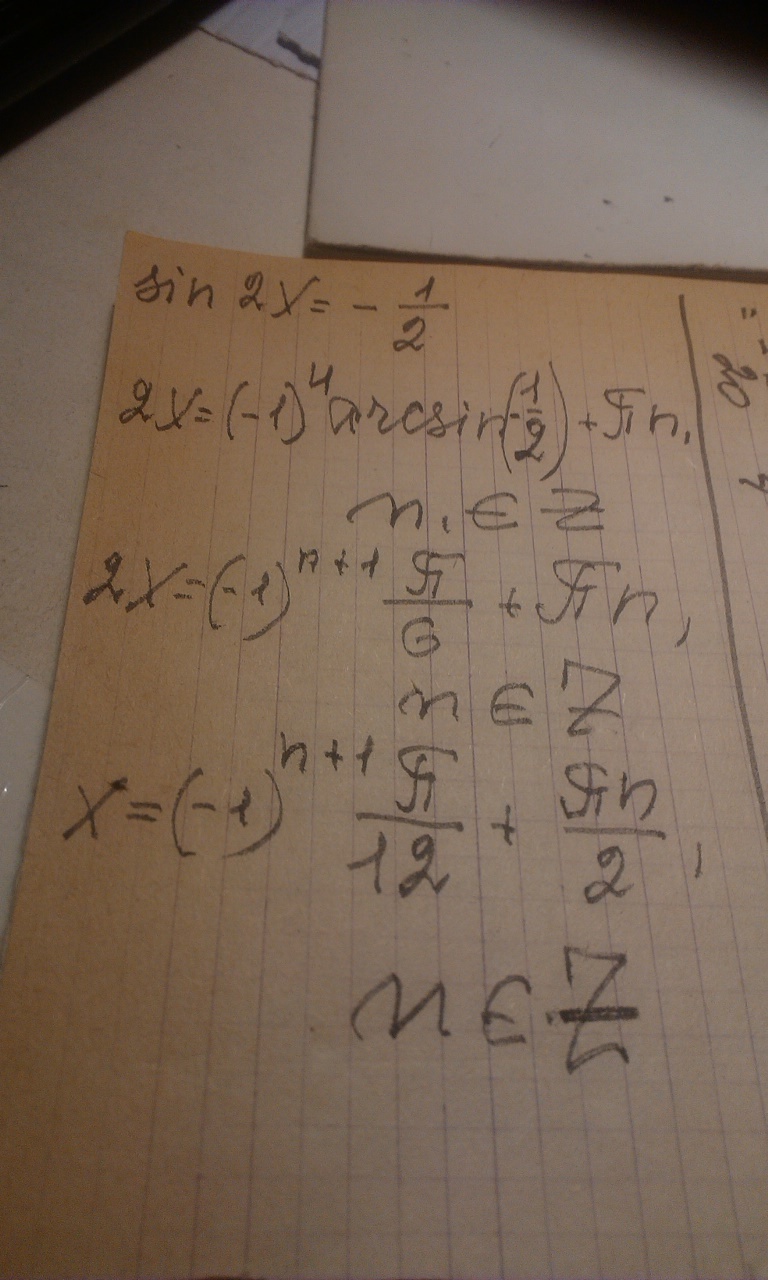 sin 2x = - 1/2
2x = (-1)^4 arcsin(-1/2) + πn,
n, ∈ Z
2x = (-1)^(n+1) π/6 + πn,
n ∈ Z
x = (-1)^(n+1) π/12 + πn/2,
n ∈ Z